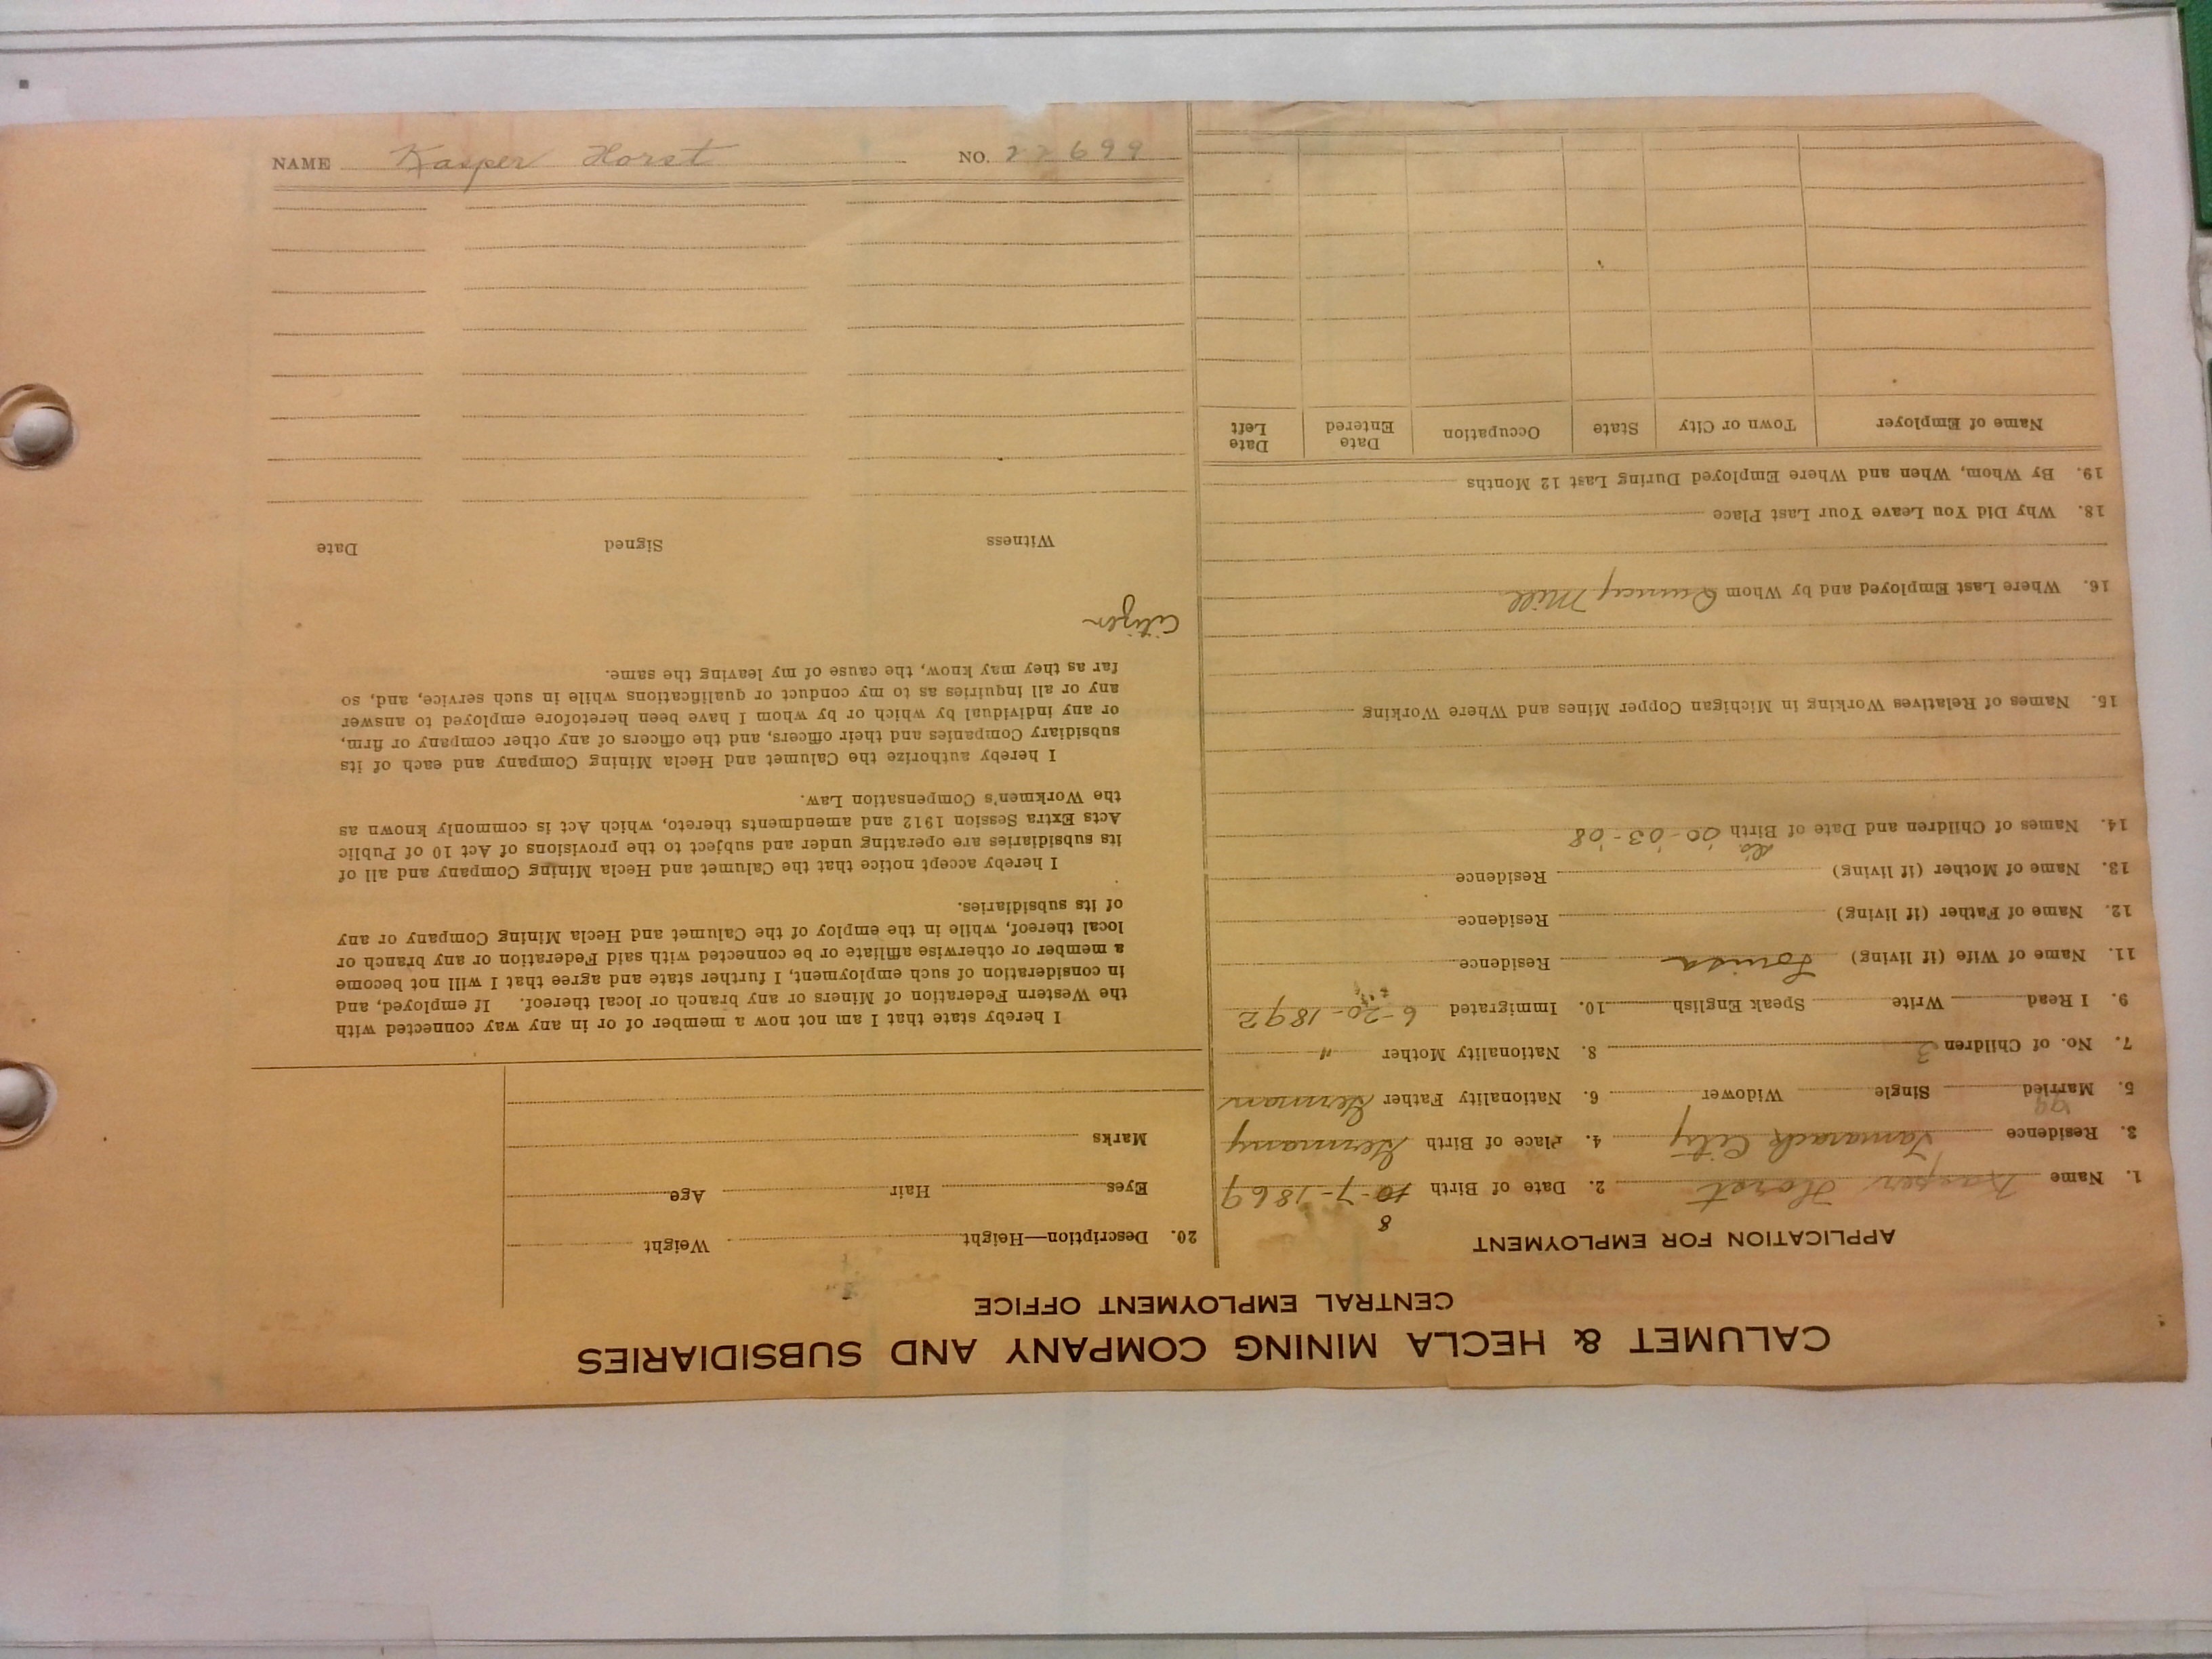 CALUMET & HECLA MINING COMPANY AND SUBSIDIARIES
CENTRAL EMPLOYMENT OFFICE
APPLICATION FOR EMPLOYMENT
1. Name Kasper Horst 2. Date of Birth 10-7-1869
8
3. Residence Tamarack City 4. Place of Birth Germany
5. Married Single Widower 6. Nationality Father German
7. No. of Children 3 8. Nationality Mother "
9. I Read Write Speak English 10. Immigrated 6-20-1892
11. Name of Wife (if living) Louisa Residence
12. Name of Father (if living) Residence
13. Name of Mother (if living) Residence
14. Names of Children and Date of Birth '00-'03-'08
15. Names of Relatives Working in Michigan Copper Mines and Where Working
16. Where Last Employed and by Whom Quincy Mill
18. Why Did You Leave Your Last Place
19. By Whom, When and Where Employed During Last 12 Months
Name of Employer Town or City State Occupation Date Entered Date Left
20. Description—Height Weight
Eyes Hair Age
Marks
I hereby state that I am not now a member of or in any way connected with
the Western Federation of Miners or any branch or local thereof. If employed, and
in consideration of such employment, I further state and agree that I will not become
a member or otherwise affiliate or be connected with said Federation or any branch or
local thereof, while in the employ of the Calumet and Hecla Mining Company or any
of its subsidiaries.
I hereby accept notice that the Calumet and Hecla Mining Company and all of
its subsidiaries are operating under and subject to the provisions of Act 10 of Public
Acts Extra Session 1912 and amendments thereto, which Act is commonly known as
the Workmen's Compensation Law.
I hereby authorize the Calumet and Hecla Mining Company and each of its
subsidiary Companies and their officers, and the officers of any other company or firm,
or any individual by which or by whom I have been heretofore employed to answer
any or all inquiries as to my conduct or qualifications while in such service, and, so
far as they may know, the cause of my leaving the same.
Citizen
Witness Signed Date
NAME Kasper Horst NO. 22699